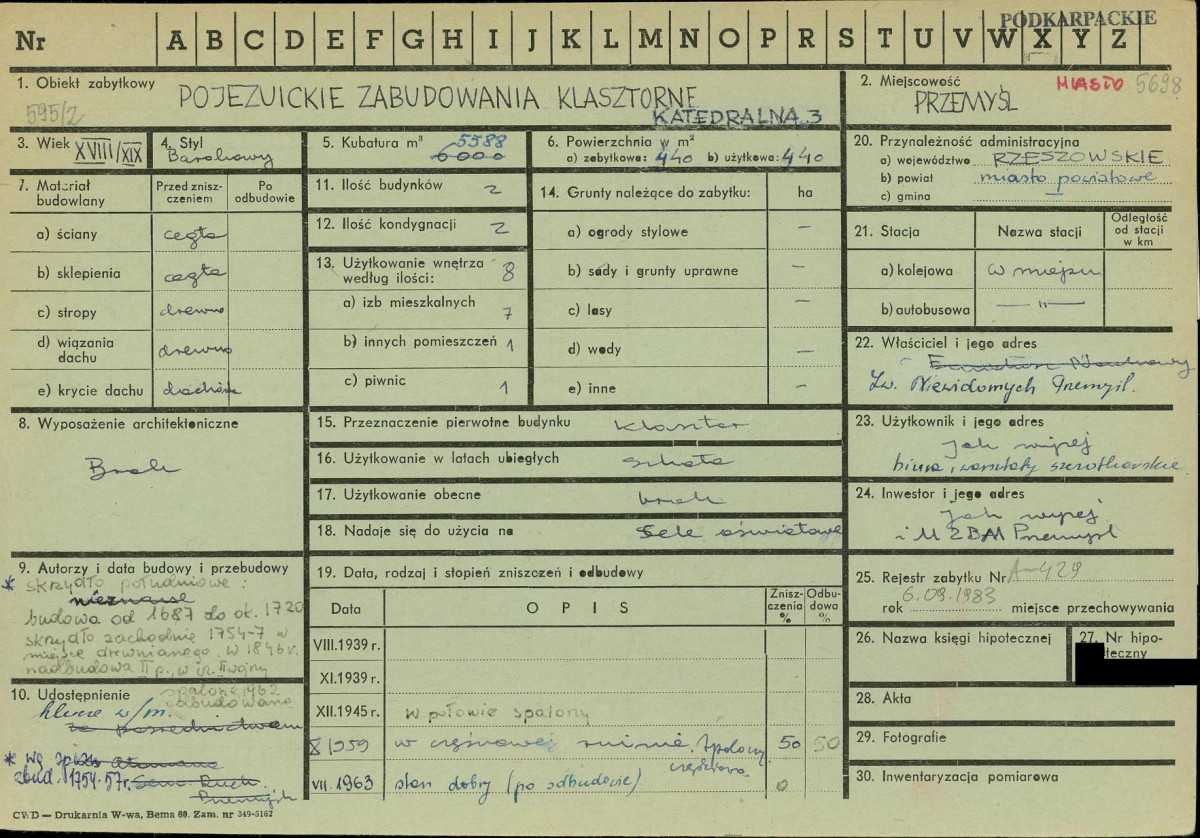 PODKARPACKIE
Nr A B C D E F G H I J K L M N O P R S T U V W X Y Z
1. Obiekt zabytkowy
595/2
POJEZUICKIE ZABUDOWANIA KLASZTORNE
KATEDRALNA 3
2. Miejscowość
MIASTO 5698
PRZEMYŚL
3. Wiek XVIII/XIX
4. Styl
Barokowy
5. Kubatura m³ 5588
6000
6. Powierzchnia w m²
a) zabytkowa: 440 b) użytkowa: 440
20. Przynależność administracyjna
a) województwo RZESZOWSKIE
b) powiat miasto powiatowe
c) gmina
7. Materiał budowlany
Przed zniszczeniem
Po odbudowie
a) ściany cegła
b) sklepienia cegła
c) stropy drewno
d) wiązania dachu drewno
e) krycie dachu dachówka
11. Ilość budynków 2
12. Ilość kondygnacji 2
13. Użytkowanie wnętrza według ilości: 8
a) izb mieszkalnych 7
b) innych pomieszczeń 1
c) piwnic 1
14. Grunty należące do zabytku: ha
a) ogrody stylowe —
b) sady i grunty uprawne —
c) lasy —
d) wody —
e) inne —
21. Stacja
Nazwa stacji
Odległość od stacji w km
a) kolejowa w miejscu
b) autobusowa — " —
22. Właściciel i jego adres
Zw. Niewidomych Przemyśl.
8. Wyposażenie architektoniczne
Brak
15. Przeznaczenie pierwotne budynku klasztor
16. Użytkowanie w latach ubiegłych szkoła
17. Użytkowanie obecne brak
18. Nadaje się do użycia na Cele oświatowe
23. Użytkownik i jego adres
Jak wyżej
biura, warsztaty szczotkarskie
24. Inwestor i jego adres
Jak wyżej
i MZBM Przemyśl
9. Autorzy i data budowy i przebudowy
* skrzydło południowe:
nieznane
budowa od 1687 do ok. 1720
skrzydło zachodnie 1754-7 w
miejsce drewnianego. w 1846 r.
nadbudowa II p., w cz. II wojny
spalone, 1962
odbudowane
19. Data, rodzaj i stopień zniszczeń i odbudowy
Data
OPIS
Zniszczenia %
Odbudowa %
VIII.1939 r.
XI.1939 r.
XII.1945 r. w połowie spalony
X 1959 w częściowej ruinie. Spalony 50 50
częściowo.
VII. 1963 stan dobry (po odbudowie) 0
25. Rejestr zabytku Nr A-429
6.09.1983
rok miejsce przechowywania
26. Nazwa księgi hipotecznej
27. Nr hipoteczny
28. Akta
29. Fotografie
30. Inwentaryzacja pomiarowa
10. Udostępnienie
klucze w/m.
za pośrednictwem
* wg
zbud. 1754-57r.
Przemyśl
CWD — Drukarnia W-wa, Bema 60. Zam. nr 349-5162